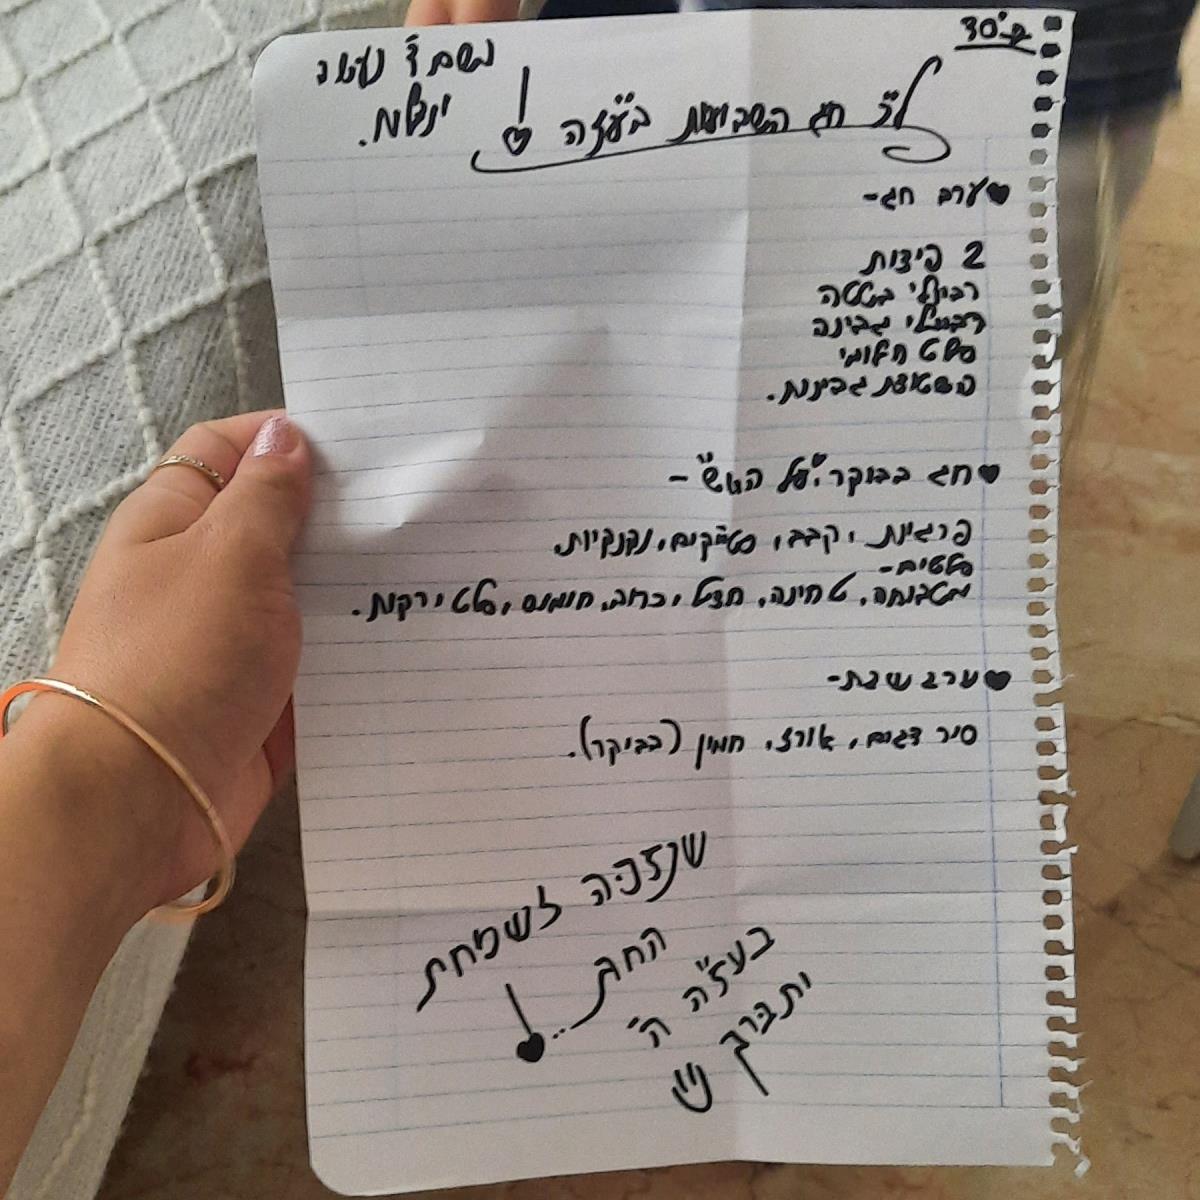 בס"ד
בשם ד' נעשה
ונצליח.
לו"ז חג השבועות בעז"ה
ערב חג-
2 פיצות
רביולי בטטה
רביולי גבינה
סלט חלומי
פשטידת גבינות.
חג בבוקר "על האש" -
פרגיות, קבב, סטייקים, נקנקיות.
סלטים-
מטבוחה, טחינה, חציל, כרוב, חומוס, סלט ירקות.
ערב שבת-
סיר דגים, אורז, חמין (בבוקר).
שנזכה לשמחת
החג...
בעז"ה ה'
יתברך